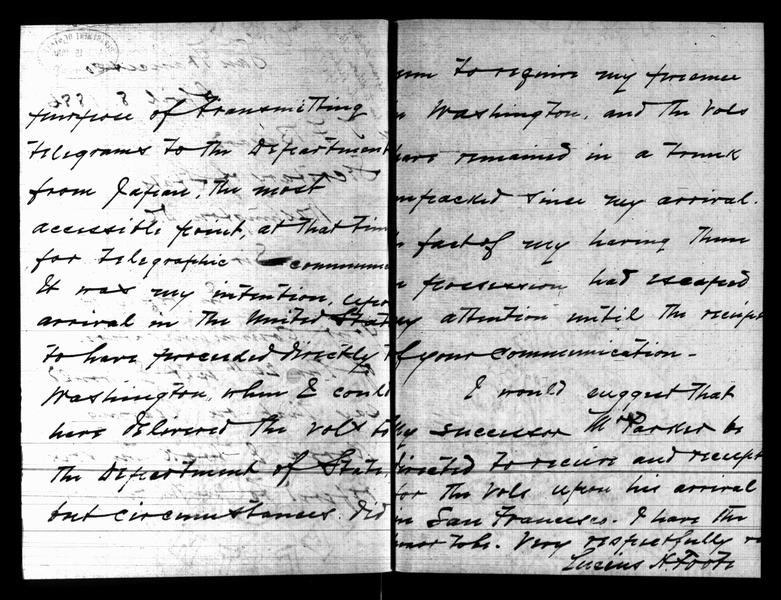 purpose of transmitting
telegrams to the Department
from Japan, the most
accessible point, at that time
for telegraphic communi
It was my intention, upon
arrival in the United States
to have proceeded directly t
Washington, when I could
have delivered the vols to
the Department of State,
but circumstances did
to require my presence
Washington, and the vols
have remained in a trunk
unpacked since my arrival.
fact of my having them
possession had escaped
my attention until the receipt
of your communication.
I would suggest that
my successor Mr Parker be
directed to receive and receipt
for the vols upon his arrival
in San Francisco. I have the
honor to be. Very respectfully
Lucius H. Foote